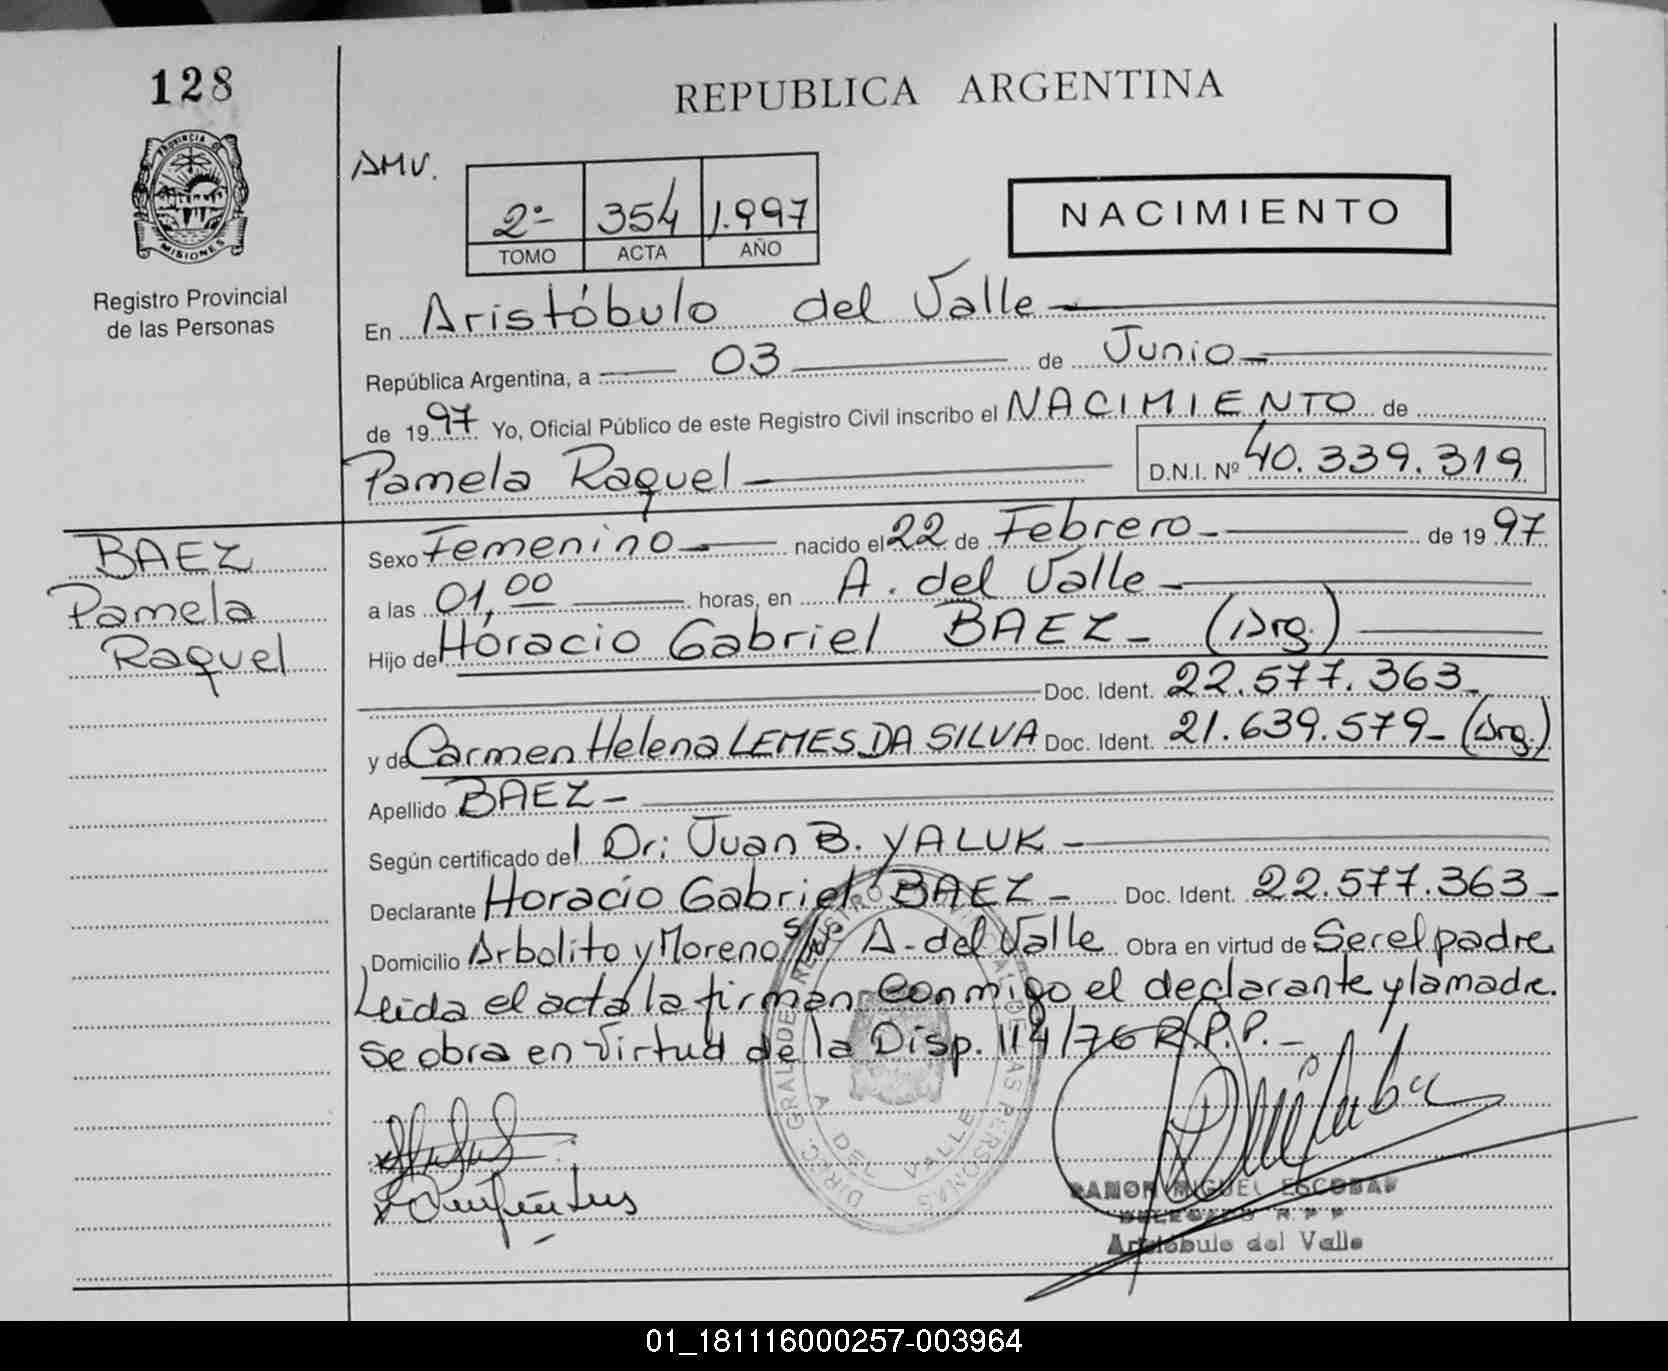 128
REPUBLICA ARGENTINA
PROVINCIA DE
MISIONES
Registro Provincial
de las Personas
AMV.
2º- 354 1.997
TOMO ACTA AÑO
NACIMIENTO
En Aristóbulo del Valle-
República Argentina, a 03 de Junio-
de 1997 Yo, Oficial Público de este Registro Civil inscribo el NACIMIENTO de
Pamela Raquel D.N.I. Nº 40.339.319
BAEZ
Pamela
Raquel
Sexo Femenino- nacido el 22 de Febrero- de 1997
a las 01,00 horas, en A. del Valle-
Hijo de Horacio Gabriel BAEZ- (Arg.)
Doc. Ident. 22.577.363-
y de Carmen Helena LEMES DA SILVA Doc. Ident. 21.639.579- (Arg.)
Apellido BAEZ-
Según certificado del Dr: Juan B. YALUK-
Declarante Horacio Gabriel BAEZ- Doc. Ident. 22.577.363-
Domicilio Arbolito y Moreno S/Nº A-del Valle Obra en virtud de Ser el padre
Leida el acta la firman conmigo el declarante y la madre.
Se obra en virtud de la Disp. 114/76 R.P.P.-
DIREC. GRAL DE REGISTRO PROVINCIAL DE LAS PERSONAS
A DEL VALLE
RAMON MIGUEL ESCOBAR
DELEGADO R.P.P
Aristóbulo del Valle
01_181116000257-003964